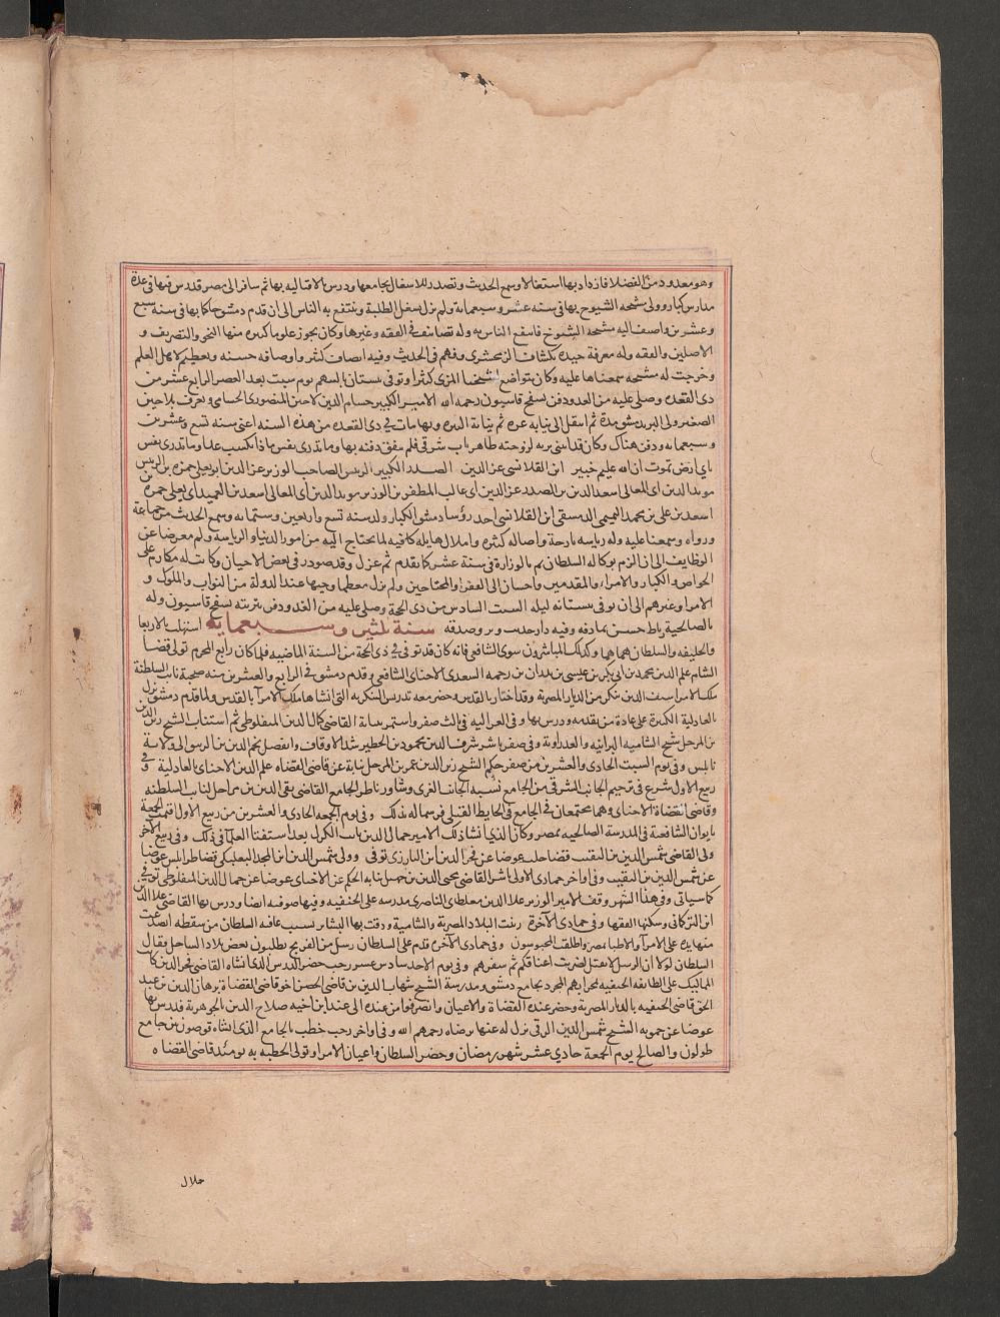 وهو معدود من الفضلا فازداد بها اشتغالا وسمع الحديث وتصدر للاشغال بجامعها ودرس بالاقبالية بها ثم سافر الى مصر فدرس فيها في عدة
مدارس كبار وولى مشيخة الشيوخ بها في سنة عشر وسبعماية ولم يزل يشغل الطلبة وينتفع به الناس الى ان قدم دمشق حاكما بها في سنة سبع
وعشرين واضيف اليه مشيخة الشيوخ فانتفع الناس به وله تصانيف في الفقه وغيرها وكان يحوز علوما كثيرة منها النحو والتصريف و
الاصلين والفقه وله معرفة جيدة بكشاف الزمخشري وفهم في الحديث وفيه انصاف كثير واوصافه حسنه وتعظيم لاهل العلم
وخرجت له مشيخه سمعناها عليه وكان يتواضع لشيخنا المزي كثيرا وتوفي ببستان بالسهم يوم سبت بعد العصر الرابع عشر من
ذي القعده وصلي عليه من الغد ودفن بسفح قاسيون رحمه الله الامير الكبير حسام الدين لاجين المنصوري الحسامي ويعرف بلاجين
الصغير ولى البر بدمشق مدة ثم انتقل الى نيابه غزه ثم نيابة البيره وبها مات في ذي القعده من هذه السنه اعنى سنه تسع وعشرين
وسبعمايه ودفن هناك وكان قد ابتنى تربه لزوجته ظاهر باب شرقي فلم يتفق دفنه بها وما تدري نفس ماذا تكسب غدا وما تدري نفس
باي ارض تموت ان الله عليم خبير ابن القلانسي عز الدين الصدر الكبير الرئيس الصاحب الوزير عز الدين ابو يعلى حمزه بن الرئيس
مويد الدين ابي المعالي اسعد الدين بن الصدر عز الدين ابي غالب المظفر بن الوزير مويد الدين ابي المعالي اسعد بن العميد ابي يعلى حمزه بن
اسعد بن علي بن محمد التميمي الدمشقي ابن القلانسي احد رؤسا دمشق الكبار ولد سنه تسع واربعين وستمايه وسمع الحديث من جماعة
ورواه وسمعنا عليه وله رياسه باذخة واصاله كثيره واملاك هايله كافيه لما يحتاج اليه من امور الدنيا والرياسه ولم معرضا عن
الوظايف الى ان الزم بوكاله السلطان ثم بالوزارة في سنة عشر كما تقدم ثم عزل وقد صودر في بعض الاحيان وكانت له مكارم على
الخواص والكبار والامرا والمقدمين واحسان الى الفقرا والمحتاجين ولم يزل معظما وجيها عند الدولة من النواب والملوك و
الامرا وغيرهم الى ان توفي ببستانه ليله السبت السادس من ذي الحجة وصلي عليه من الغد ودفن بتربته بسفح قاسيون وله
بالصالحيه رباط حسن بمادنه وفيه دار حديث وبر وصدقه سنة ثلثين وسبعماية استهلت بالاربعا
والخليفه والسلطان هما هما وكذلك المباشرون سوى الشافعي فانه كان قد توفي في ذي الحجة من السنة الماضيه فلما كان رابع المحرم تولى قضا
الشام علم الدين محمد بن ابي بكر بن عيسى بن بدران بن رحمه السعدي الاخناي الشافعي وقدم دمشق في الرابع والعشرين منه صحبة نايب السلطنة
ملك الامرا سيف الدين تنكز من الديار المصرية وقد اجتاز بالقدس وحضر معه تدريس التنكزيه التي انشاها ملك الامرا بالقدس ولما قدم دمشق نزل
بالعادلية الكبيرة على عادة من تقدمه ودرس بها وفي الغزاليه في ثالث صفر واستمر بنيابة القاضي كمال الدين المنفلوطي ثم استناب الشيخ زين الدين
بن المرحل شيخ الشاميه البرانيه والعدراوية وفي صفر باشر شرف الدين محمود بن الخطير شد الاوقاف وانفصل نجم الدين بن الزيبق الى ولاية
نابلس وفي يوم السبت الحادي والعشرين من صفر حكم الشيخ زين الدين عمر بن المرحل نيابة عن قاضي القضاه علم الدين الاخناي بالعادلية وفي
ربيع الاول شرع في ترخيم الجانب الشرقي من الجامع نسبه الجانب الغربي وشاور ناظر الجامع القاضي تقي الدين بن مراجل لنايب السلطنه
وقاضي لقضاة الاخناي وهما مجتمعان في الجامع في الحايط القبلي فرسما له بذلك وفي يوم الجمعه الحادي والعشرين من ربيع الاول اقيمت الجمعة
بايوان الشافعة في المدرسة الصالحيه بمصر وكان الذي انشا ذلك الامير جمال الدين نايب الكرك بعد استفتا العلما في ذلك وفي ربيع الاخر
ولى القاضي شمس الدين بن النقيب قضا حلب عوضا عن فخر الدين ابن البارزي توفي وولى شمس الدين ابن المجد البعلبكي قضا طرابلس عوضا
عن شمس الدين بن النقيب وفي اواخر جمادى الاولى باشر القاضي محيي الدين بن جميل نيابه الحكم عن الاخناي عوضا عن جمال الدين المنفلوطي توفي
كما سياتي وفي هذا الشهر وقف الامير الوزير علا الدين مغلطاي الناصري مدرسه على الحنفيه وفيها صوفيه ايضا ودرس بها القاضي علا الدين
ابن التركماني وسكنها الفقها وفي جمادى الآخرة زينت البلاد المصرية والشامية ودقت بها البشاير بسبب عافيه السلطان من سقطه انصدعت
منها يده على الامرا والاطبا بمصر واطلقت المحبوسون وفي جمادى الآخره قدم على السلطان رسل من الفرنج يطلبون بعض بلاد الساحل فقال
السلطان لولا ان الرسل لا تقتل لضربت اعناقكم ثم سفرهم وفي يوم الاحد سادس عشر رجب حضر الدرس الذي انشاه القاضي فخر الدين كاتب
المماليك على الطايفه الحنفيه بمحرابهم المجرد بجامع دمشق ومدرسة الشيخ شهاب الدين بن قاضي الحصن اخو قاضي القضاة برهان الدين بن عبد
الحق قاضي الحنفيه بالديار المصرية وحضر عنده القضاة والاعيان وانصرفوا من عنده الى عند ابن اخيه صلاح الدين بالجوهرية فدرس بها
عوضا عن حميه الشيخ شمس الدين الرقي نزل له عنها برضاه رحمهم الله وفي اواخر رجب خطب بالجامع الذي انشاه قوصون بين جامع
طولون والصالح يوم الجمعة حادي عشر شهر رمضان وحضر السلطان واعيان الامرا وتولى الخطبه به يومئذ قاضي القضاه
جلال